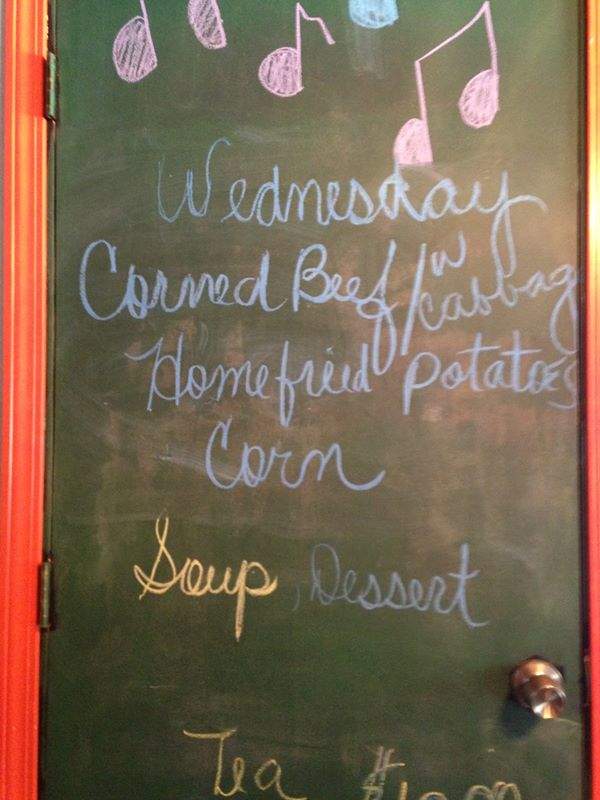 Wednesday
Corned Beef w/ cabbag
Homefried Potatoes
Corn
Soup, Dessert
Tea